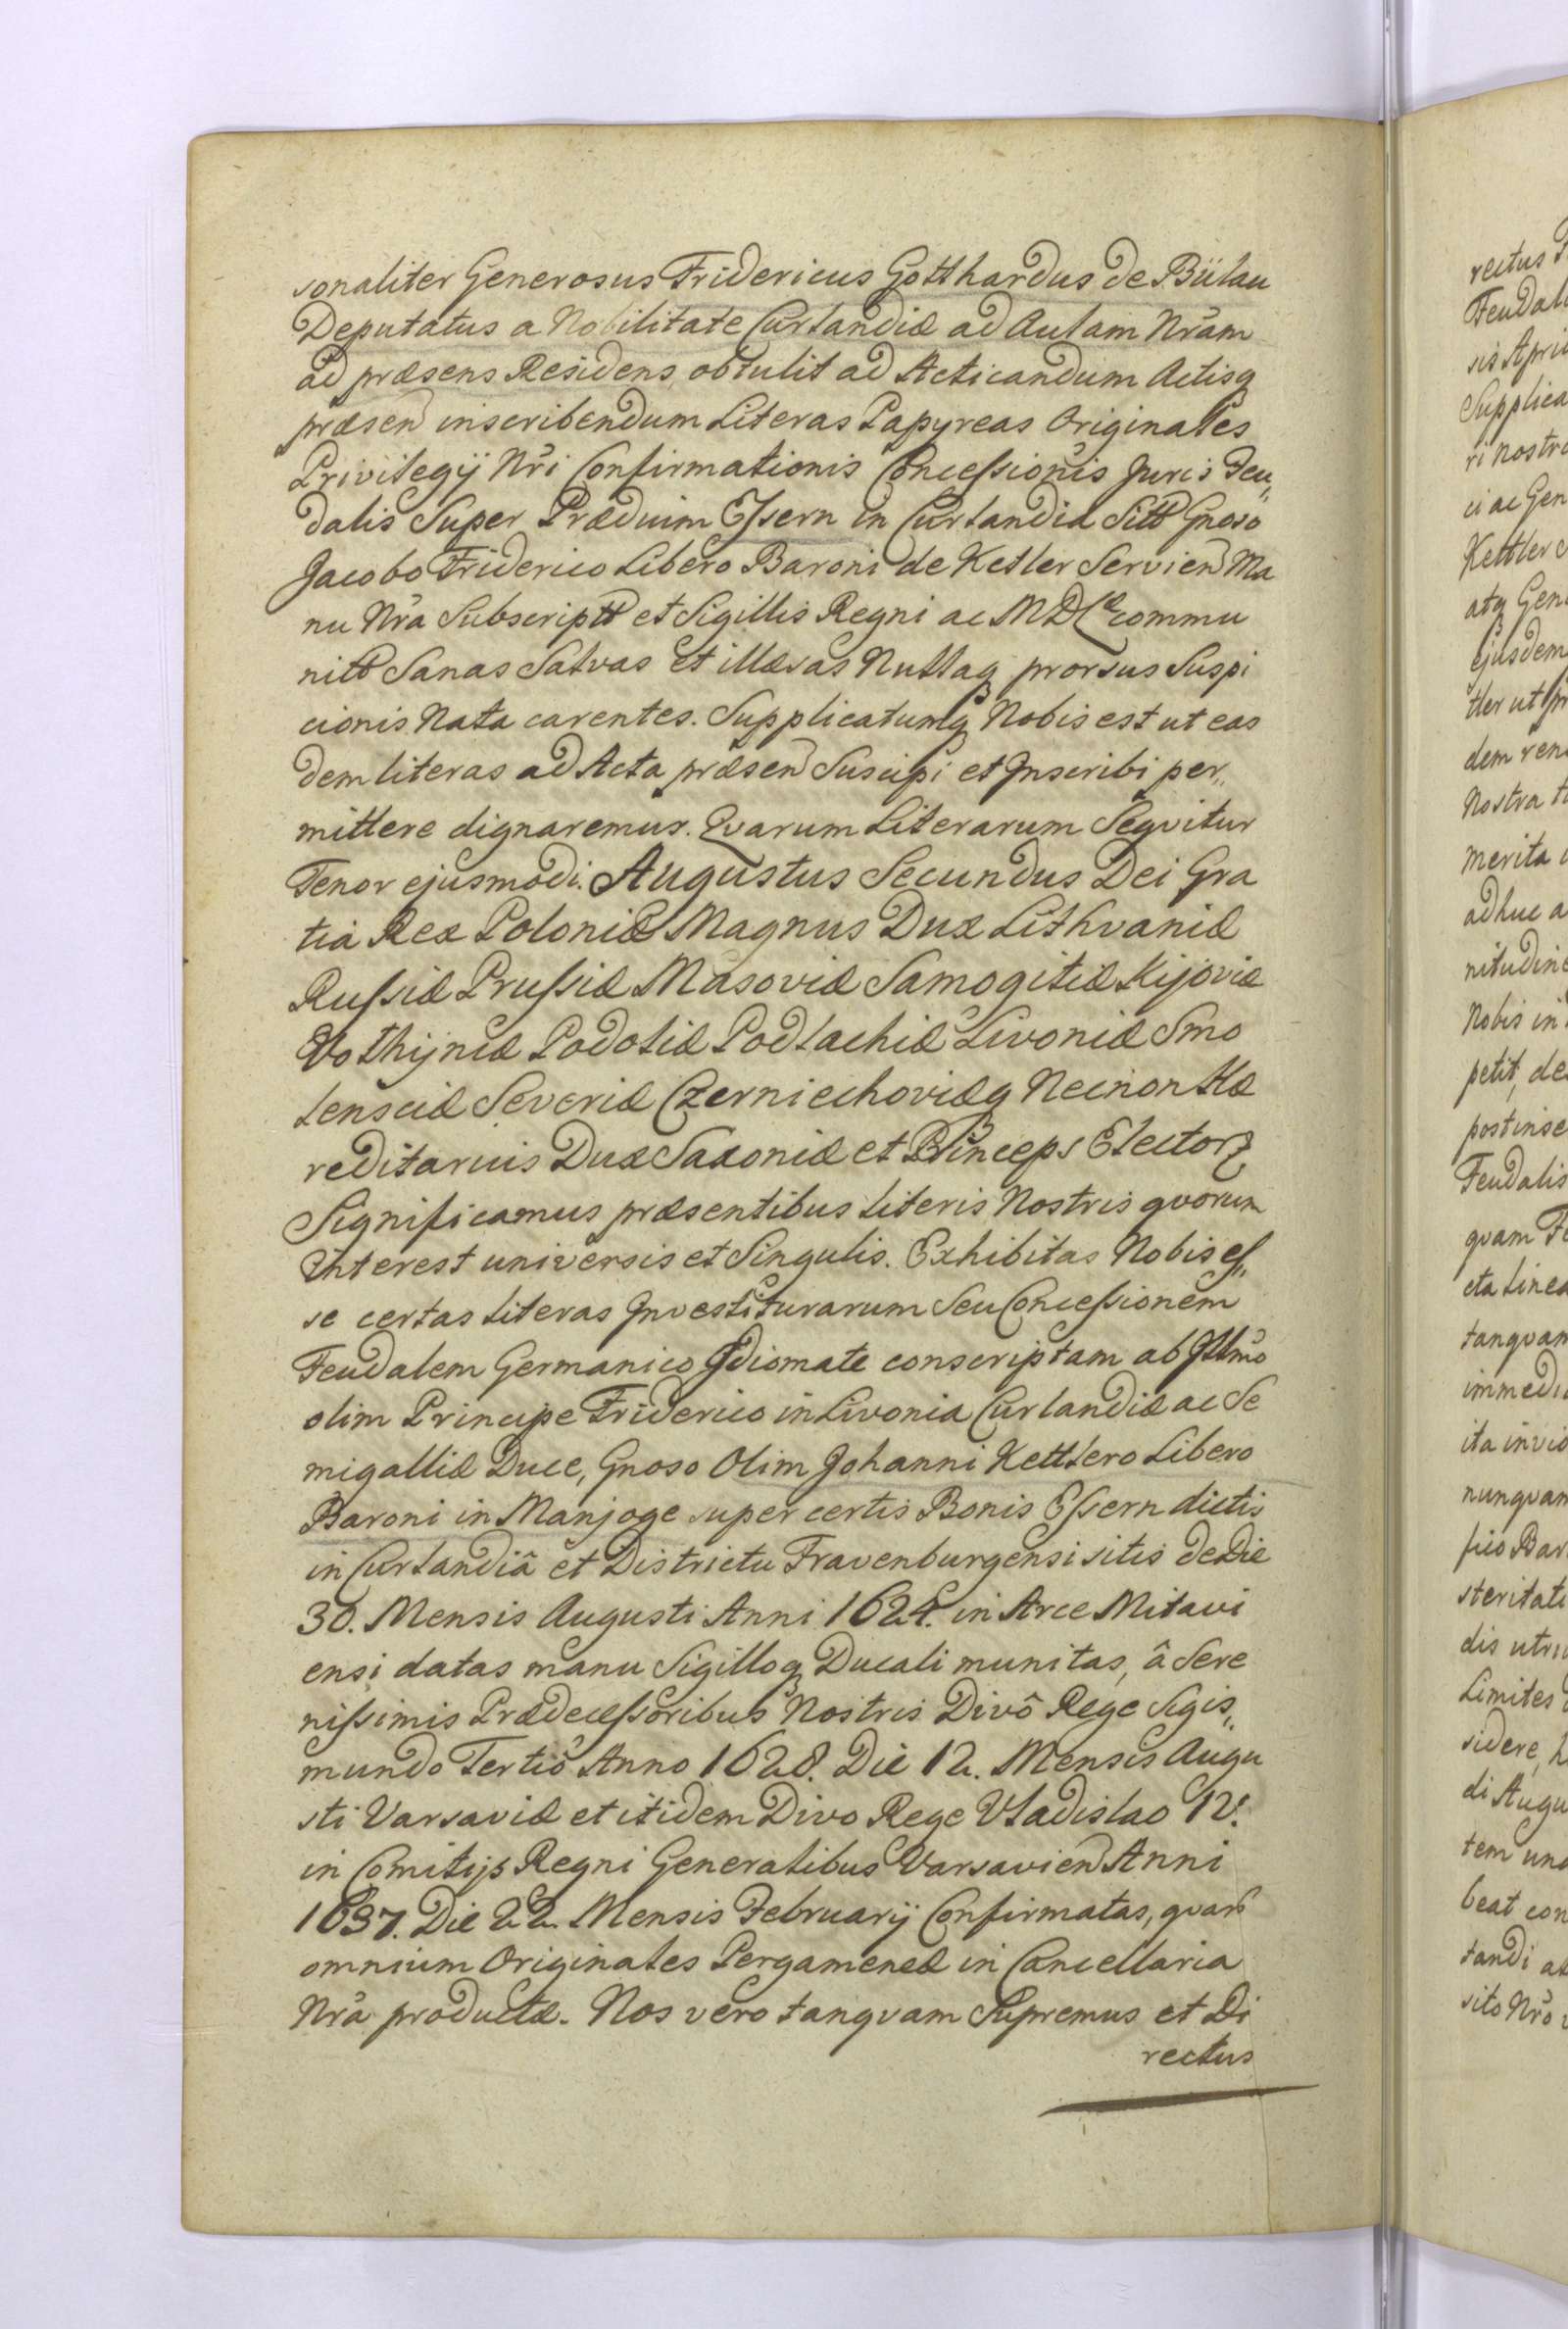 sonaliter Generosus Fridericus Gotthardus de Bülau
Deputatus a Nobilitate Curlandiæ ad Aulam Nrãm
ad præsens Residens, obtulit ad Acticandum Actisq
præsen inscribendum Literas Papyreas Originales
Privilegÿ Nr̃i Confirmationis Concessionis Juris Feu„
dalis Super Prædium Essern in Curlandia Sitt Gnoso
Jacobo Friderico Libero Baroni de Ketler Servien Ma
nu Nr̃a Subscriptt et Sigillis Regni ac MDL commu
nitt Sanas Salvas et illæsas Nullaq prorsus Suspi
cionis Nota carentes. Supplicatumq Nobis est ut eas
dem literas ad Acta præsen Suscipi et Inscribi per„
mittere dignaremur. Qvarum Literarum Seqvitur
Tenor ejusmodi. Augustus Secundus Dei Gra
tia Rex Poloniæ Magnus Dux Lithvaniæ
Russiæ Prussiæ Masoviæ Samogitiæ Kijoviæ
Volhÿniæ Podoliæ Podlachiæ Livoniæ Smo
lensciæ Severiæ Czerniechoviæq Necnon Hæ
reditarius Dux Saxoniæ et Princeps Elector
Significamus præsentibus literis Nostris qvorum
Interest universis et Singulis. Exhibitas Nobis es„
se certas literas Investiturarum Seu Concessionem
Feudalem Germanico Idiomate conscriptam ab Illmo
olim Principe Friderico in Livonia Curlandiæ ac Se
migalliæ Duce, Gnoso Olim Johanni Kettlero Libero
Baroni in Manjoge super certis Bonis Essern dictis
in Curlandiâ et Districtu Fravenburgensi sitis de Die
30. Mensis Augusti Anni 1624. in Arce Mitavi
ensi datas manu Sigilloq Ducali munitas, â Sere
nissimis Prædecessoribus Nostris Divô Rege Sigis„
mundo Tertiô Anno 1628. Die 12. Mensis Augu
sti Varsaviæ et itidem Divo Rege Vladislao IV.
in Comitijs Regni Generalibus Varsavien Anni
1637. Die 22. Mensis Februarÿ Confirmatas, qvar
omnium Originales Pergameneæ in Cancellaria
Nr̃a productæ. Nos vero tanqvam Supremus et Di
rectus